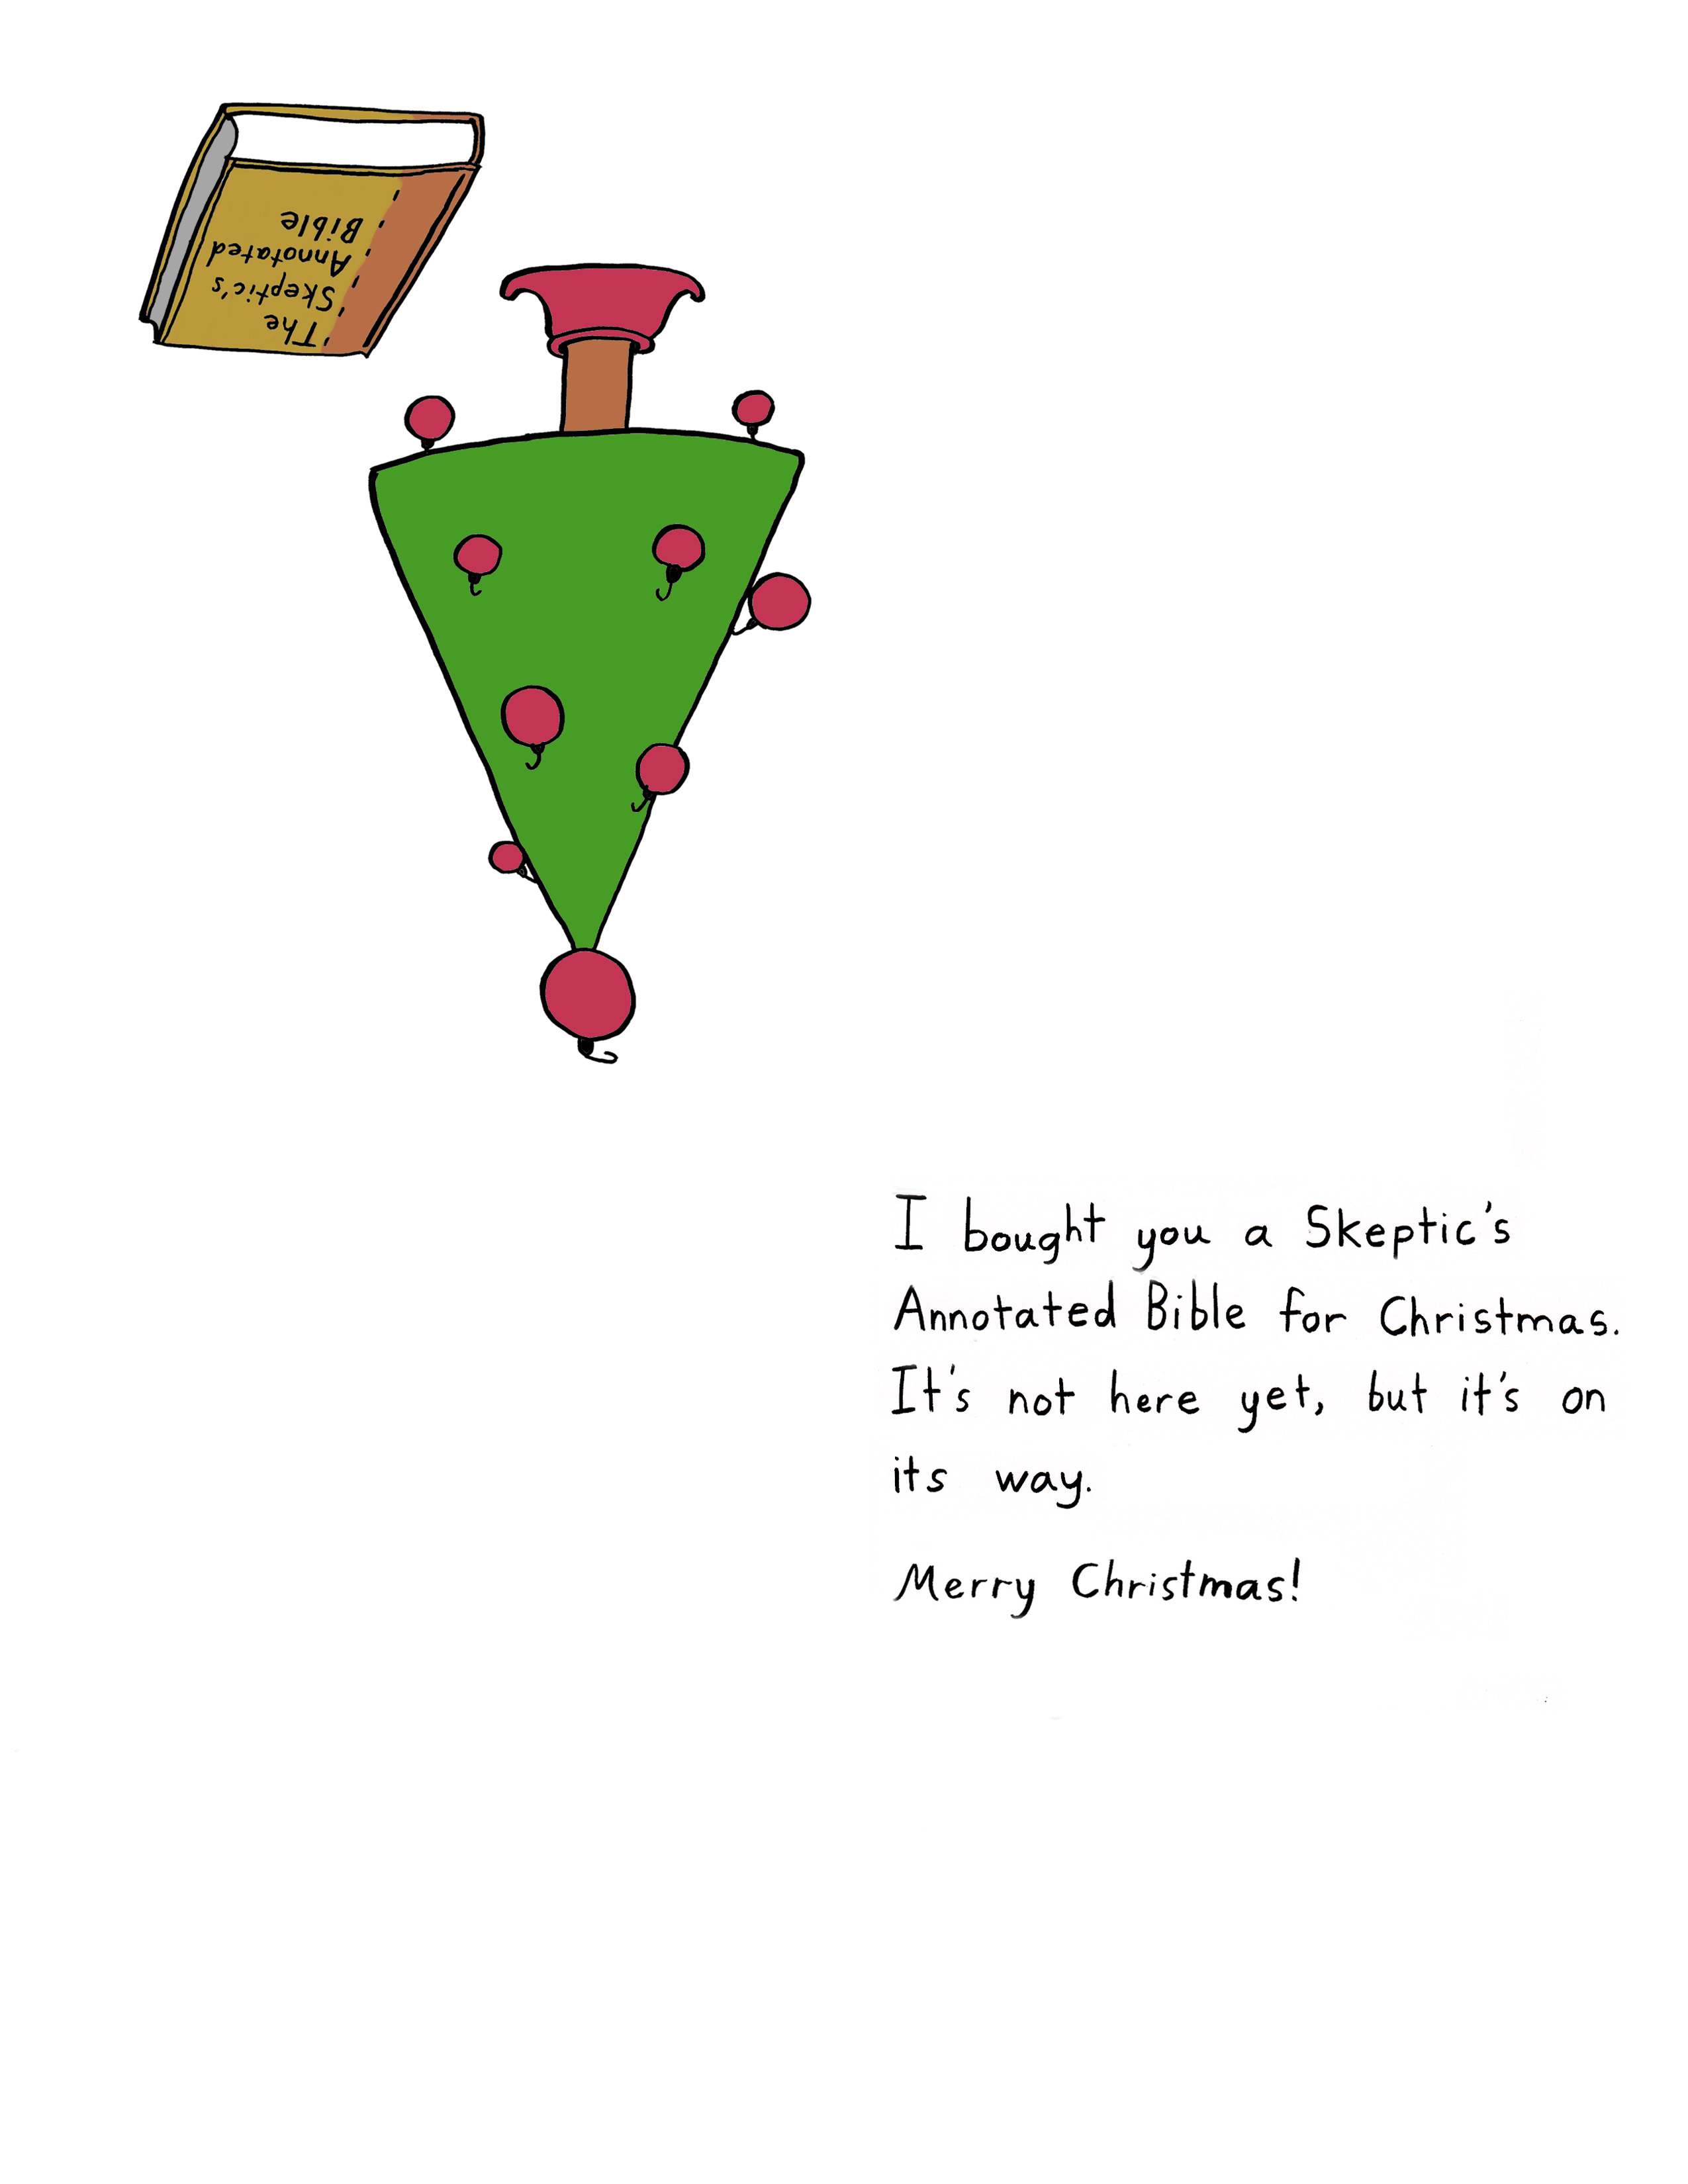 The
Skeptic's
Annotated
Bible
I bought you a Skeptic's
Annotated Bible for Christmas.
It's not here yet, but it's on
its way.
Merry Christmas!